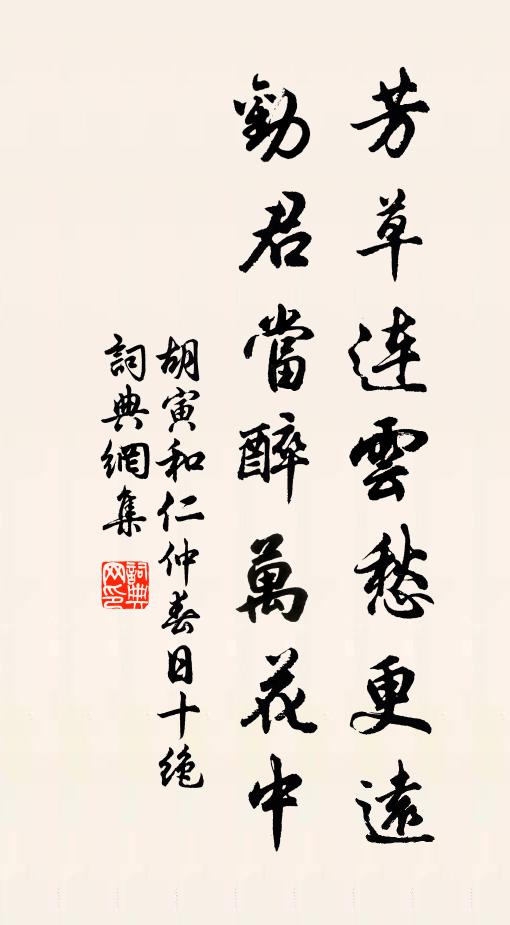 芳草连雲愁更遠
勸君當醉萬花中
胡寅和仁仲春日十绝
詞典網集
詞典网印